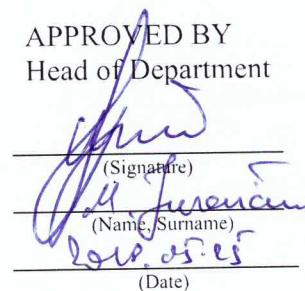 APPROVED BY
Head of Department
(Signature)
M.
(Name, Surname)
2018.05.25
(Date)